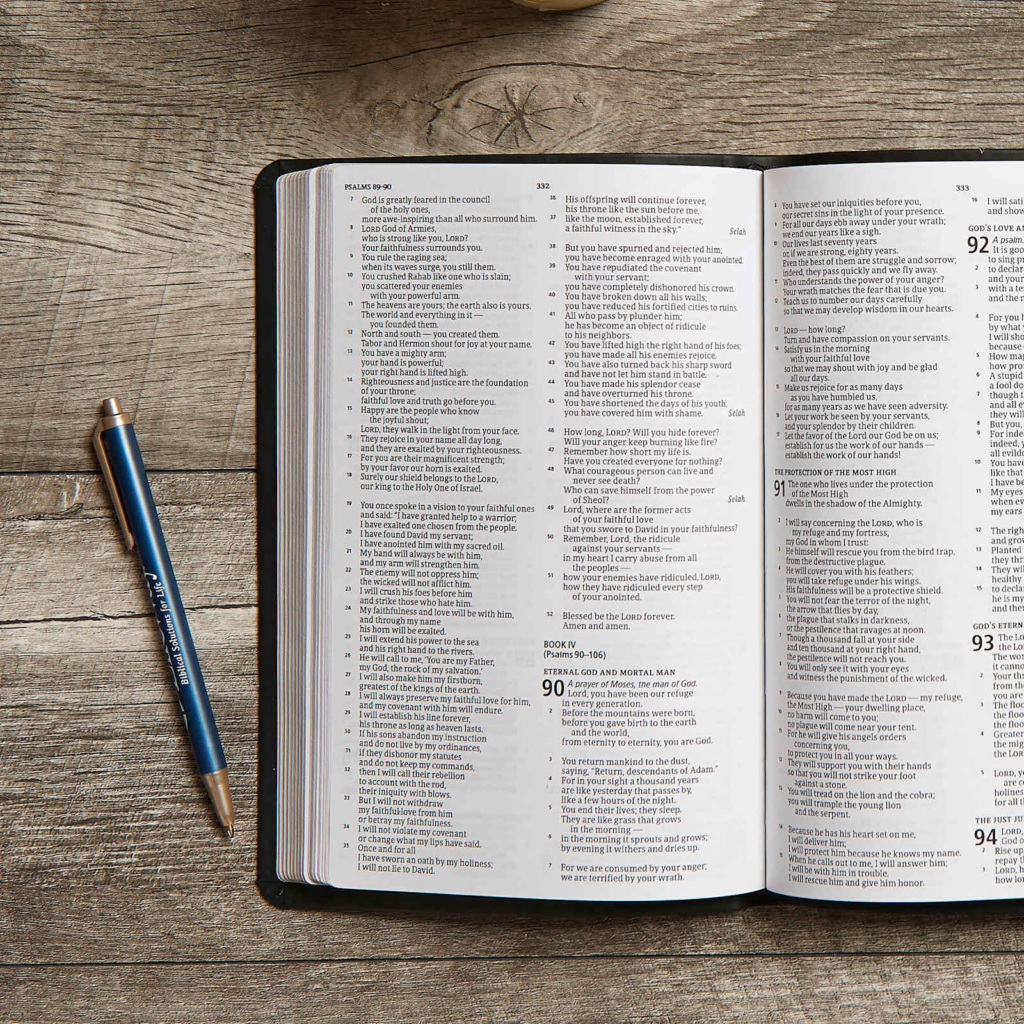 Biblical Solutions for Life
PSALMS 89-90
332
7 God is greatly feared in the council
of the holy ones,
more awe-inspiring than all who surround him.
8 LORD God of Armies,
who is strong like you, LORD?
Your faithfulness surrounds you.
9 You rule the raging sea;
when its waves surge, you still them.
10 You crushed Rahab like one who is slain;
you scattered your enemies
with your powerful arm.
11 The heavens are yours; the earth also is yours.
The world and everything in it —
you founded them.
12 North and south — you created them.
Tabor and Hermon shout for joy at your name.
13 You have a mighty arm;
your hand is powerful;
your right hand is lifted high.
14 Righteousness and justice are the foundation
of your throne;
faithful love and truth go before you.
15 Happy are the people who know
the joyful shout;
LORD, they walk in the light from your face.
16 They rejoice in your name all day long,
and they are exalted by your righteousness.
17 For you are their magnificent strength;
by your favor our horn is exalted.
18 Surely our shield belongs to the LORD,
our king to the Holy One of Israel.
19 You once spoke in a vision to your faithful ones
and said: "I have granted help to a warrior;
I have exalted one chosen from the people.
20 I have found David my servant;
I have anointed him with my sacred oil.
21 My hand will always be with him,
and my arm will strengthen him.
22 The enemy will not oppress him;
the wicked will not afflict him.
23 I will crush his foes before him
and strike those who hate him.
24 My faithfulness and love will be with him,
and through my name
his horn will be exalted.
25 I will extend his power to the sea
and his right hand to the rivers.
26 He will call to me, 'You are my Father,
my God, the rock of my salvation.'
27 I will also make him my firstborn,
greatest of the kings of the earth.
28 I will always preserve my faithful love for him,
and my covenant with him will endure.
29 I will establish his line forever,
his throne as long as heaven lasts.
30 If his sons abandon my instruction
and do not live by my ordinances,
31 if they dishonor my statutes
and do not keep my commands,
32 then I will call their rebellion
to account with the rod,
their iniquity with blows.
33 But I will not withdraw
my faithful love from him
or betray my faithfulness.
34 I will not violate my covenant
or change what my lips have said.
35 Once and for all
I have sworn an oath by my holiness;
I will not lie to David.
36 His offspring will continue forever,
his throne like the sun before me,
37 like the moon, established forever,
a faithful witness in the sky." Selah
38 But you have spurned and rejected him;
you have become enraged with your anointed.
39 You have repudiated the covenant
with your servant;
you have completely dishonored his crown.
40 You have broken down all his walls;
you have reduced his fortified cities to ruins.
41 All who pass by plunder him;
he has become an object of ridicule
to his neighbors.
42 You have lifted high the right hand of his foes;
you have made all his enemies rejoice.
43 You have also turned back his sharp sword
and have not let him stand in battle.
44 You have made his splendor cease
and have overturned his throne.
45 You have shortened the days of his youth;
you have covered him with shame. Selah
46 How long, LORD? Will you hide forever?
Will your anger keep burning like fire?
47 Remember how short my life is.
Have you created everyone for nothing?
48 What courageous person can live and
never see death?
Who can save himself from the power
of Sheol? Selah
49 Lord, where are the former acts
of your faithful love
that you swore to David in your faithfulness?
50 Remember, Lord, the ridicule
against your servants —
in my heart I carry abuse from all
the peoples —
51 how your enemies have ridiculed, LORD,
how they have ridiculed every step
of your anointed.
52 Blessed be the LORD forever.
Amen and amen.
BOOK IV
(Psalms 90–106)
ETERNAL GOD AND MORTAL MAN
90 A prayer of Moses, the man of God.
Lord, you have been our refuge
in every generation.
2 Before the mountains were born,
before you gave birth to the earth
and the world,
from eternity to eternity, you are God.
3 You return mankind to the dust,
saying, "Return, descendants of Adam."
4 For in your sight a thousand years
are like yesterday that passes by,
like a few hours of the night.
5 You end their lives; they sleep.
They are like grass that grows
in the morning —
6 in the morning it sprouts and grows;
by evening it withers and dries up.
7 For we are consumed by your anger;
we are terrified by your wrath.
333
You have set our iniquities before you,
our secret sins in the light of your presence.
For all our days ebb away under your wrath;
we end our years like a sigh.
Our lives last seventy years
or, if we are strong, eighty years.
Even the best of them are struggle and sorrow;
indeed, they pass quickly and we fly away.
Who understands the power of your anger?
Your wrath matches the fear that is due you.
Teach us to number our days carefully
so that we may develop wisdom in our hearts.
LORD — how long?
Turn and have compassion on your servants.
Satisfy us in the morning
with your faithful love
so that we may shout with joy and be glad
all our days.
Make us rejoice for as many days
as you have humbled us,
for as many years as we have seen adversity.
Let your work be seen by your servants,
and your splendor by their children.
Let the favor of the Lord our God be on us;
establish for us the work of our hands —
establish the work of our hands!
THE PROTECTION OF THE MOST HIGH
91 The one who lives under the protection
of the Most High
dwells in the shadow of the Almighty.
I will say concerning the LORD, who is
my refuge and my fortress,
my God in whom I trust:
He himself will rescue you from the bird trap,
from the destructive plague.
He will cover you with his feathers;
you will take refuge under his wings.
His faithfulness will be a protective shield.
You will not fear the terror of the night,
the arrow that flies by day,
the plague that stalks in darkness,
or the pestilence that ravages at noon.
Though a thousand fall at your side
and ten thousand at your right hand,
the pestilence will not reach you.
You will only see it with your eyes
and witness the punishment of the wicked.
Because you have made the LORD — my refuge,
the Most High — your dwelling place,
no harm will come to you;
no plague will come near your tent.
For he will give his angels orders
concerning you,
to protect you in all your ways.
They will support you with their hands
so that you will not strike your foot
against a stone.
You will tread on the lion and the cobra;
you will trample the young lion
and the serpent.
Because he has his heart set on me,
I will deliver him;
I will protect him because he knows my name.
When he calls out to me, I will answer him;
I will be with him in trouble.
I will rescue him and give him honor.
16 I will
and
GOD'S LOVE
92 A psalm.
It is
to sing
2 to
3 with a
and the
4 For you
by what
I will
because
5 How
how
6 A stupid
a fool
7 though
and all
they will
8 But you,
9 For
indeed,
all
10 You
like that
I have
11 My eyes
when
my ears
12 The
and
13 Planted
14 They
healthy
15 to
he is my
and
GOD'S
93 The
the
The
it cannot
2 Your
from
you are
3 The
the
the
4 Greater
the
the
5 LORD,
are
for all
THE JUST
94 LORD,
God
2 Rise up,
repay
3 LORD,
how